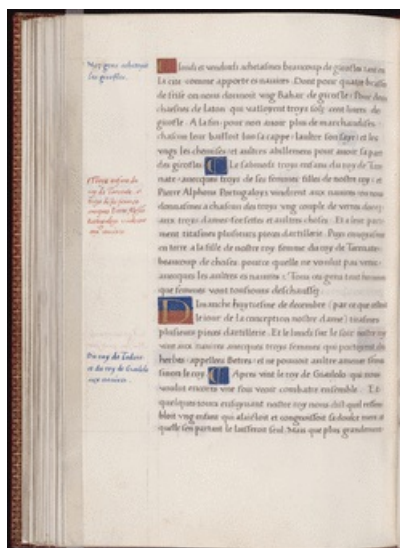 Noz gens achetoyent
les girofles.
Lundi et vendredi achetasmes beaucoup de girofles tant en
la cite comme apporte es navires. Dont pour quatre brasses
de frise on nous donnoit vng Bahar de girofle: Pour deux
chaisnes de laton qui valloyent troys solz cent livres de
girofle. A la fin: pour non avoir plus de marchandises:
chascun leur bailloit luy sa cappe: laultre son saye: et les
vngs les chemises: et aultres abillemens pour avoir sa part
des girofles Le samedi troys enfans du roy de Tar
nate avecques troys de ses femmes filles de nostre roy: et
Pierre Alphonse Portugaloys vindrent aux navires ou nous
donnasmes a chascun des troys vng couple de verres dorez:
aux troys dames forsettes et aultres choses. Et a leur parte
ment tirasmes plusieurs pieces dartillerie. Puis envoyasmes
en terre a la fille de nostre roy femme du roy de Tarnate
beaucoup de choses pource quelle ne voulut pas venir
avecques les aultres es navires. Tous ces gens tant hommes
que femmes vont tousiours deschaussez
Troys enfans du
roy de Tarnate et
troys de ses femmes
avecques Pierre Alphonse
Portugaloys vindrent
aux navires
Dimanche huytiesme de decembre (par ce que estoit
le iour de la conception nostre dame) tirasmes
plusieurs pieces dartillerie. Et le lundi sur le soir nostre roy
vint aux navires avecques troys femmes qui portoyent des
herbes appellees Betres: et ne povoient aultre amener femme
sinon le roy Apres vint le roy de Giailolo qui nous
voulut encores vne foys veoir combatre ensemble. Et
quelques iours ensuyvant nostre roy nous dist quil ressem
bloit vng enfant qui alaictoit et congnoissoit sa doulce mere et
quelle sen partant le laisseroit seul. Mais que plus grandement
Du roy de Tadore
et du roy de Giailolo
aux navires